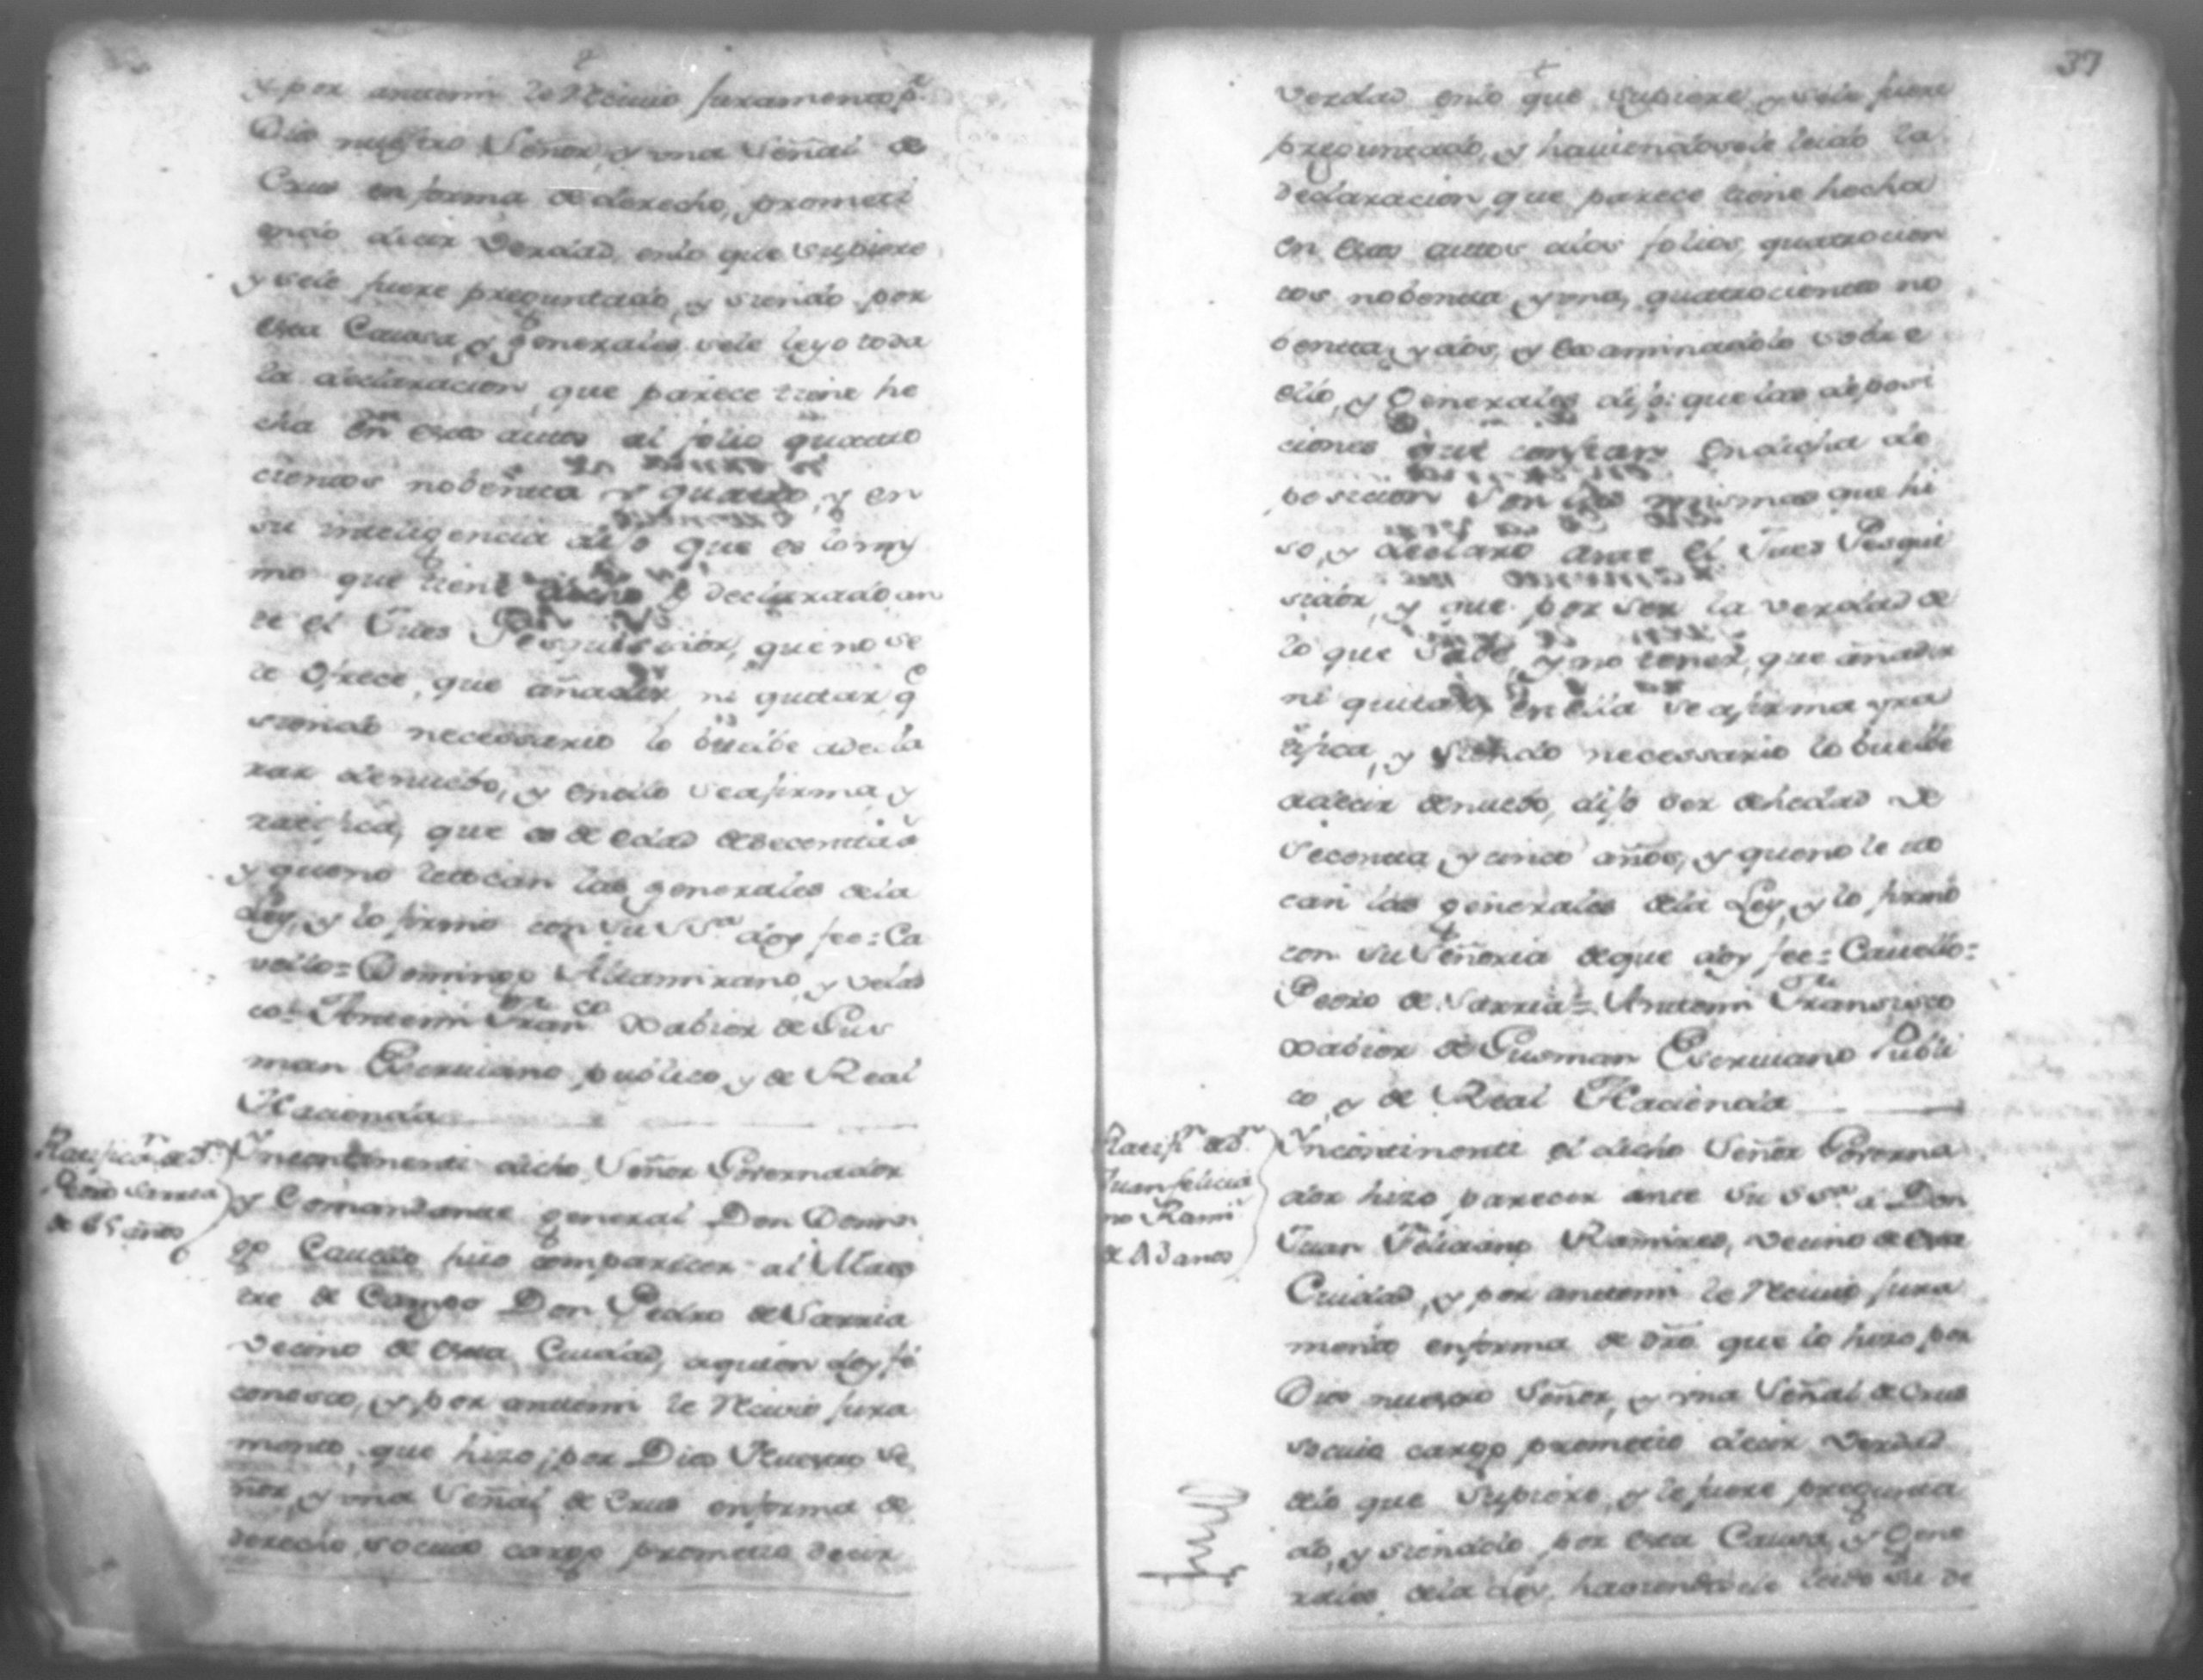 y por antemi le Recivio juramento p.r
Dios nuestro Señor, y una Señal de
Crus en forma de derecho, prometi
endo decir Verdad, enlo que supiere
y sele fuere preguntado, y siendo por
esta Causa, y generales sele leyo toda
la declaracion, que parece tiene he
cha en estos autos al folio quatro
cientos nobenta y quatro, y en
su inteligencia dijo que es lo mis
mo que tiene dicho y declarado an
te el Jues Pesquisidor, que no se
le ofrece, que añadir, ni quitar, q.e
siendo necessario lo buelbe a decla
rar denuebo, y enello se afirma, y
ratifica, que es de edad de
y queno letocan las generales dela
Ley, y lo firmó con su SS.a doy fee = Ca
vello = Domingo Altamirano, y velas
co = Antemi Fran.co Xabier de Gus
man Escrivano publico, y de Real
Hacienda
Ratificaz.n de D.n
Pedro Sarria
de 65 años
Yncontinenti dicho Señor Governador
y Comandante general Don Domin
go Cavello hizo comparecer al Maes
tre de Campo Don Pedro de Sarria
Vecino de esta Ciudad, aquien doy fé
conosco, y por antemi le Recivio jura
mento, que hizo por Dios Nuestro Se
ñor, y una Señal de Crus enforma de
derecho, socuio cargo prometio decir
37
Verdad enlo que supiere, y sele fuere
preguntado, y haviendosele leido la
declaracion, que parece tiene hecha
en estos autos alos folios, quatrocien
tos nobenta, y una, quatrocientos no
benta, y dos, y examinadolo sobre
ello, y Generales dijo: que las deposi
ciones que constan en dicha de
posicion son las mismas que hi
so, y declaro ante el Jues Pesqui
sidor, y que por ser la verdad de
lo que sabe, y no tener, que añadir
ni quitar, en ella se afirma y ra
tifica, y siendo necessario lo buelbe
adecir denuebo, dijo ser dehedad de
Secenta, y cinco años, y queno le to
can las generales dela Ley, y lo firmó
con su Señoria deque doy fee = Cavello =
Pedro de Sarria = Antemi Fransisco
Xabier de Gusman Escrivano Publi
co, y de Real Hacienda
Ratif.n de D.n
Juan Felicia
no Rami
de 43 años
Yncontinenti el dicho Señor Governa
dor hizo parecer ante su SS.a á Don
Juan Feliciano Ramires, vecino de esta
Ciudad, y por antemi le Recivio jura
mento enforma de dro. que lo hizo por
Dios nuestro Señor, y una Señal de Crus
socuio cargo prometio decir Verdad
delo que supiere, y le fuere pregunta
do, y siendolo por esta Causa, y Gene
rales dela Ley, haviendosele leido su de